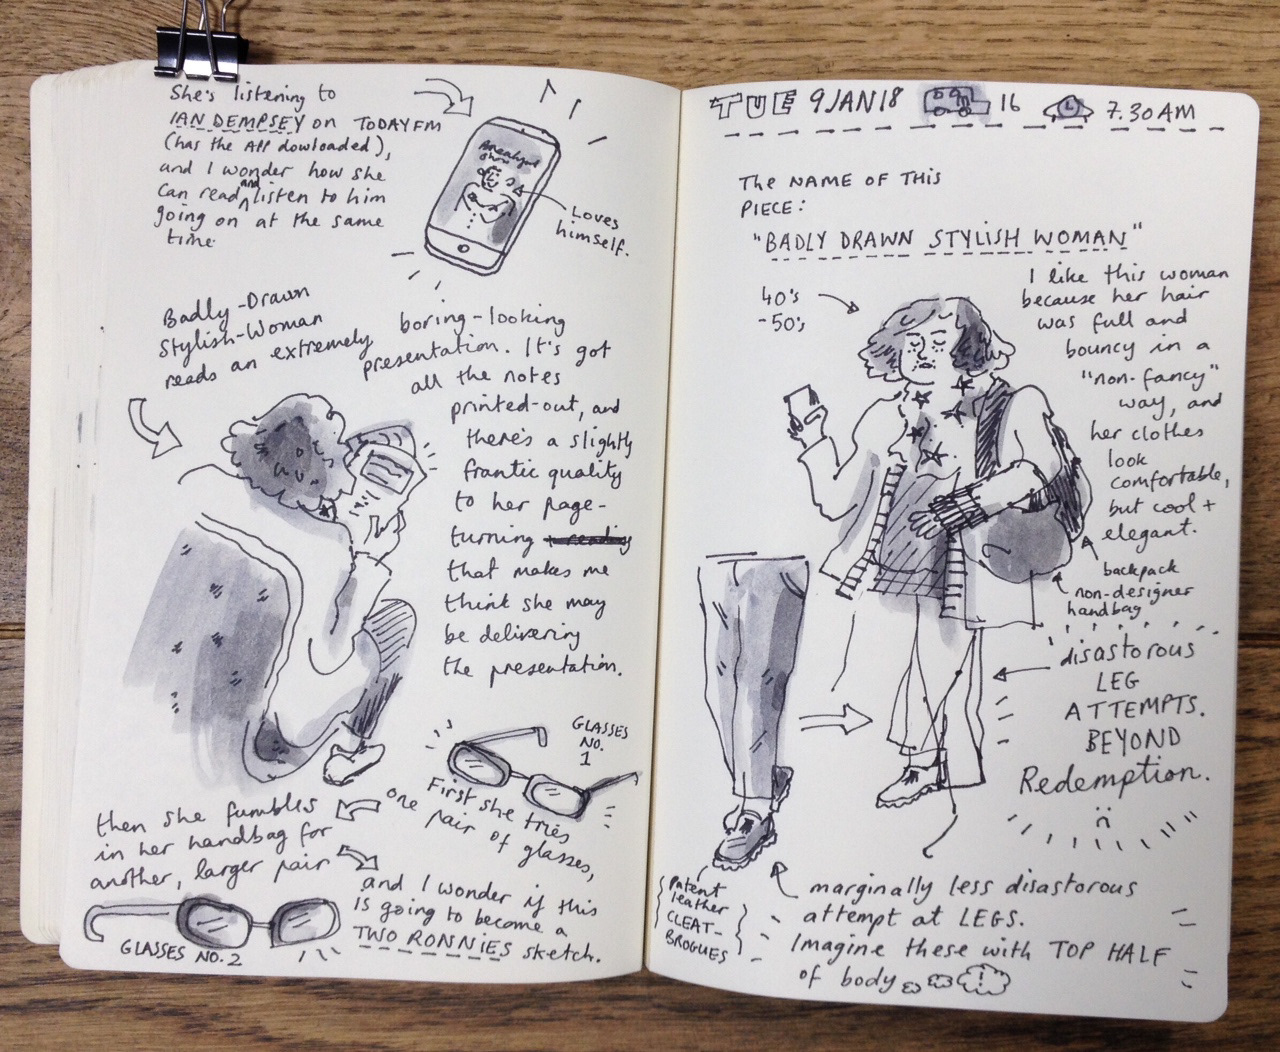 She's listening to
IAN DEMPSEY on TODAYFM
(has the APP dowloaded),
and I wonder how she
can read and listen to him
going on at the same
time.
Breakfast
Show
Loves
himself.
Badly-Drawn
Stylish-Woman
reads an extremely
boring-looking
presentation. It's got
all the notes
printed-out, and
there's a slightly
frantic quality
to her page-
turning + reading
that makes me
think she may
be delivering
the presentation.
GLASSES
NO.
1
First she tries
one pair of glasses,
then she fumbles
in her handbag for
another, larger pair
GLASSES NO. 2
and I wonder if this
is going to become a
TWO RONNIES sketch.
TUE 9 JAN 18 16 7.30AM
The NAME OF THIS
PIECE:
"BADLY DRAWN STYLISH WOMAN"
40's
-50's
I like this woman
because her hair
was full and
bouncy in a
"non-fancy"
way, and
her clothes
look
comfortable,
but cool +
elegant.
backpack
non-designer
handbag
disastorous
LEG
ATTEMPTS.
BEYOND
Redemption.
patent
leather
CLEAT-
BROGUES
marginally less disastorous
attempt at LEGS.
Imagine these with TOP HALF
of body